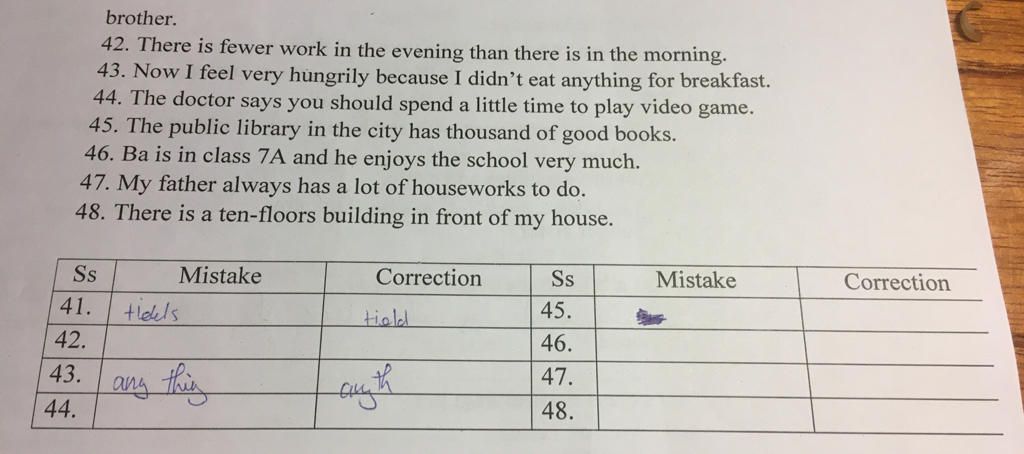 brother.
42. There is fewer work in the evening than there is in the morning.
43. Now I feel very hungrily because I didn't eat anything for breakfast.
44. The doctor says you should spend a little time to play video game.
45. The public library in the city has thousand of good books.
46. Ba is in class 7A and he enjoys the school very much.
47. My father always has a lot of houseworks to do.
48. There is a ten-floors building in front of my house.
Ss Mistake Correction Ss Mistake Correction
41. 45.
42. 46.
43. any thing anyth 47.
44. 48.